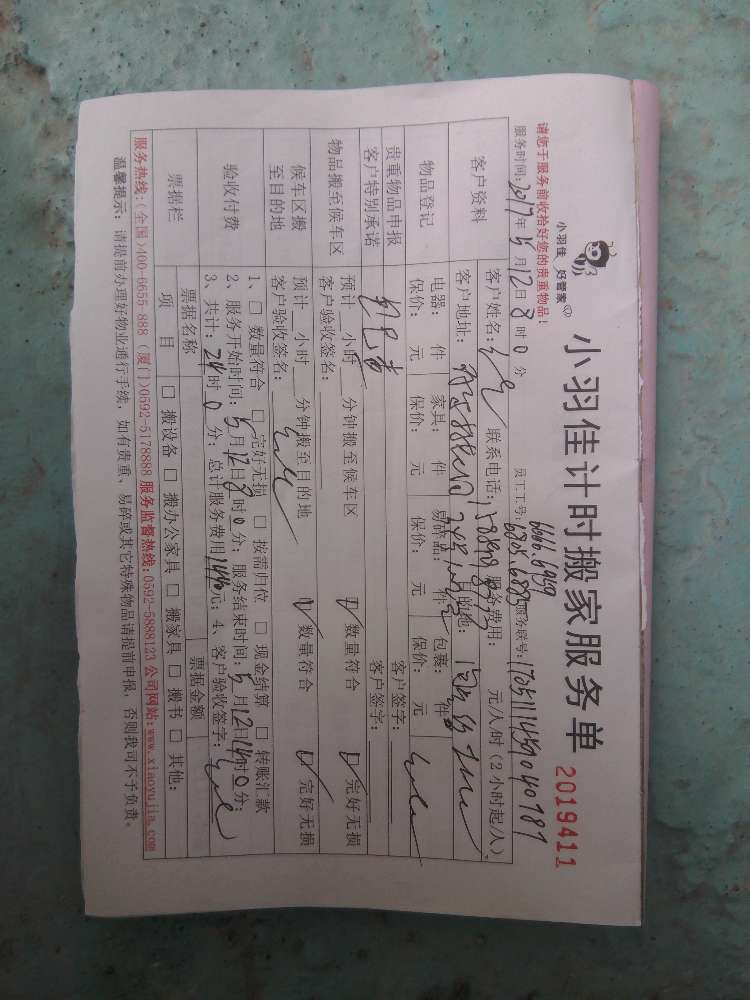 小羽佳 好管家
小羽佳计时搬家服务单 2019411
请您于服务前收拾好您的贵重物品！
员工工号：6666.6959
服务时间：2017年5月12日8时0分
服务联号：
客户资料
客户姓名： 联系电话： 服务费用： 元/人/时（2小时起/人）
客户地址： 目的地：
物品登记
电器： 件 家具： 件 易碎品： 件 包裹： 件
保价： 元 保价： 元 保价： 元 保价： 元
贵重物品申报 客户签字：
客户特别承诺 客户签字：
物品搬至候车区
预计 小时 分钟搬至候车区 ☑数量符合 ☑完好无损
客户验收签名：
候车区搬至目的地
预计 小时 分钟搬至目的地 ☑数量符合 ☑完好无损
客户验收签名：
验收付费
1、□ 数量符合 □ 完好无损 □ 按需归位 □ 现金结算 □ 转账汇款
2、服务开始时间：5月12日8时0分；服务结束时间：5月12日14时0分；
3、共计：24时0分；总计服务费用1440元；4、客户验收签字：
票据栏
票据名称 票据金额
项 目 □ 搬设备 □ 搬办公家具 □ 搬家具 □ 搬书 □ 其他：
服务热线：（全国）400-6655-888（厦门）0592-5178888 服务监督热线：0592-5888123 公司网站：www.xiaoyujia.com
温馨提示：请提前办理好物业通行手续，如有贵重、易碎或其它特殊物品请提前申报，否则我司不予负责。